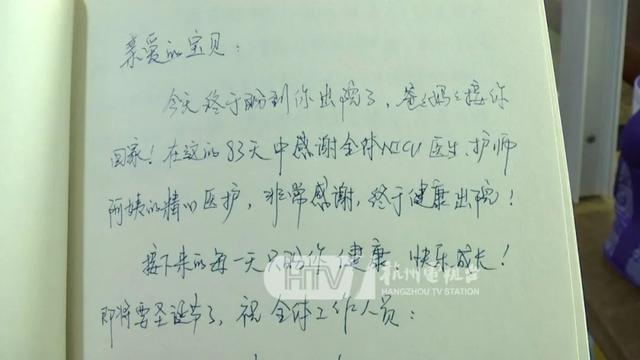 亲爱的宝贝：
今天终于盼到你出院了，爸爸妈妈接你
回家！在这的83天中感谢全体NICU医生、护师
阿姨的精心医护，非常感谢，终于健康出院！
接下来的每一天只盼你健康 快乐成长！
HTV 杭州电视台
HANGZHOU TV STATION
即将要圣诞节了，祝全体工作人员：